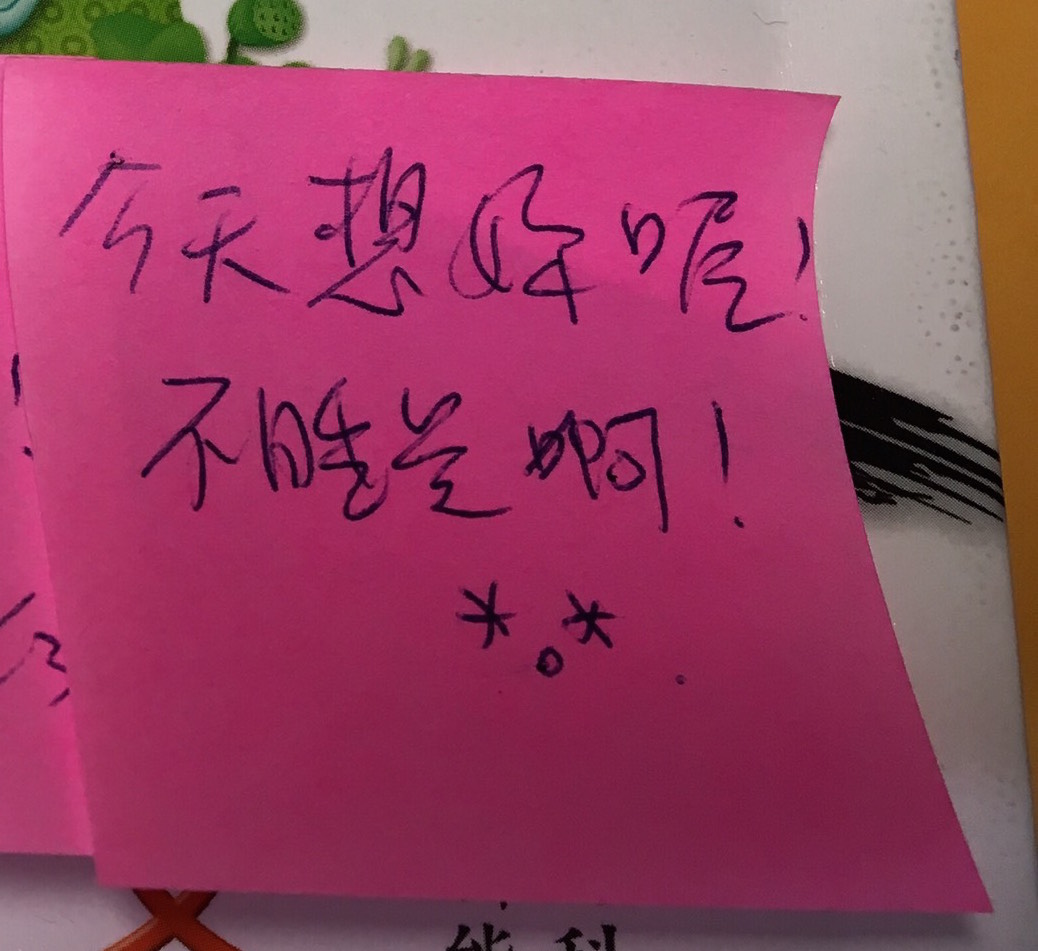 今天想好喔!
不睡觉啊!
*。*.